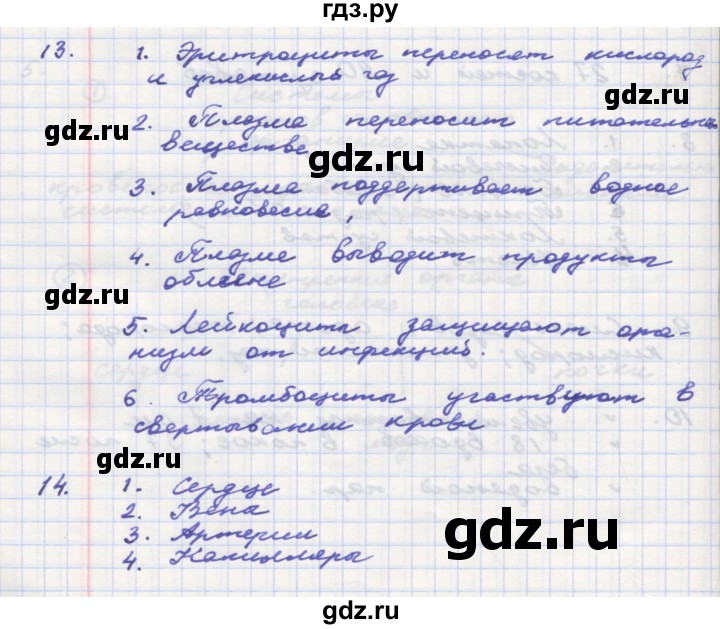 гдз.ру
13. 1. Эритроциты переносят кислород
и углекислый газ
gdz.ru
2. Плазма переносит питательные
вещества
gdz.ru
3. Плазма поддерживает водное
равновесие,
4. Плазма выводит продукты
обмена
gdz.ru
gdz.ru
5. Лейкоциты защищают орга-
низм от инфекций.
6. Тромбоциты участвуют в
свертывании крови
gdz.ru
gdz.ru
14. 1. Сердце
2. Вена
3. Артерии
4. Капилляры
gdz.ru
gdz.ru